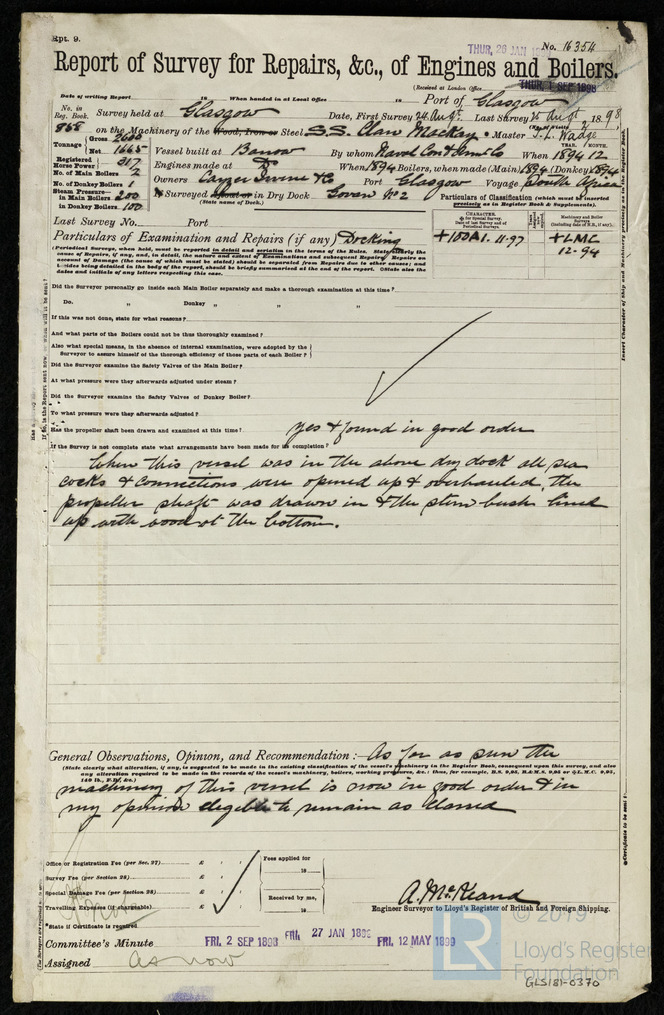 Rpt. 9.
THUR, 26 JAN 1899
No. 16354
Report of Survey for Repairs, &c., of Engines and Boilers.
(Received at London Office
THUR, 1 SEP 1898
Date of writing Report to When handed in at Local Office to Port of Glasgow
No. in Reg. Book. Survey held at Glasgow Date, First Survey 24 Augt. Last Survey 25 Augt 1898
(No. of Visits 2
868 on the Machinery of the Wood, Iron or Steel S.S. Clan Mackay. Master J. L. Wadge
Tonnage Gross 2600 Net 1665 Vessel built at Barrow By whom Naval Con & Armt Co When 1894 12
YEAR. MONTH.
Registered Horse Power 317 Engines made at Do When 1894 Boilers, when made (Main) 1894 (Donkey) 1894
No. of Main Boilers 2 Owners Cayzer Irvine & Co Port Glasgow Voyage South Africa
No. of Donkey Boilers 1
Steam Pressure in Main Boilers 200 in Donkey Boilers 100
Surveyed Afloat or in Dry Dock Govan No 2
(State name of Dock.)
Particulars of Classification (which must be inserted precisely as in Register Book & Supplements).
Last Survey No. Port
CHARACTER.
Machinery and Boiler Surveys
+100A1. 11.97
+LMC 12.94
Particulars of Examination and Repairs (if any) Docking
Did the Surveyor personally go inside each Main Boiler separately and make a thorough examination at this time?
Do. " Donkey " " "
If this was not done, state for what reasons?
And what parts of the Boilers could not be thus thoroughly examined?
Also what special means, in the absence of internal examination, were adopted by the
Surveyor to assure himself of the thorough efficiency of those parts of each Boiler?
Did the Surveyor examine the Safety Valves of the Main Boiler?
At what pressure were they afterwards adjusted under steam?
Did the Surveyor examine the Safety Valves of Donkey Boiler?
To what pressure were they afterwards adjusted?
Has the propeller shaft been drawn and examined at this time? Yes & found in good order
If the Survey is not complete state what arrangements have been made for its completion?
When this vessel was in the above dry dock all sea
cocks & connections were opened up & overhauled, the
propeller shaft was drawn in & the stern bush lined
up with wood at the bottom.
General Observations, Opinion, and Recommendation:— As far as seen the
(State clearly what alteration, if any, is suggested to be made in the existing classification of the vessel's machinery in the Register Book, consequent upon this survey, and also
any alteration required to be made in the records of the vessel's machinery, boilers, working pressures, &c.
machinery of this vessel is now in good order & in
my opinion eligible to remain as classed
Office or Registration Fee (per Sec. 27) £
Fees applied for
Survey Fee (per Section 28) £
18
Special Damage Fee (per Section 28) £
Received by me,
Travelling Expenses (if chargeable) £
18
A. McKeand
Engineer Surveyor to Lloyd's Register of British and Foreign Shipping.
*State if Certificate is required
Committee's Minute FRI, 2 SEP 1898 FRI, 27 JAN 1899 FRI, 12 MAY 1899
Assigned as now
LR
© 2019
Lloyd's Register
Foundation
GLS181-0370